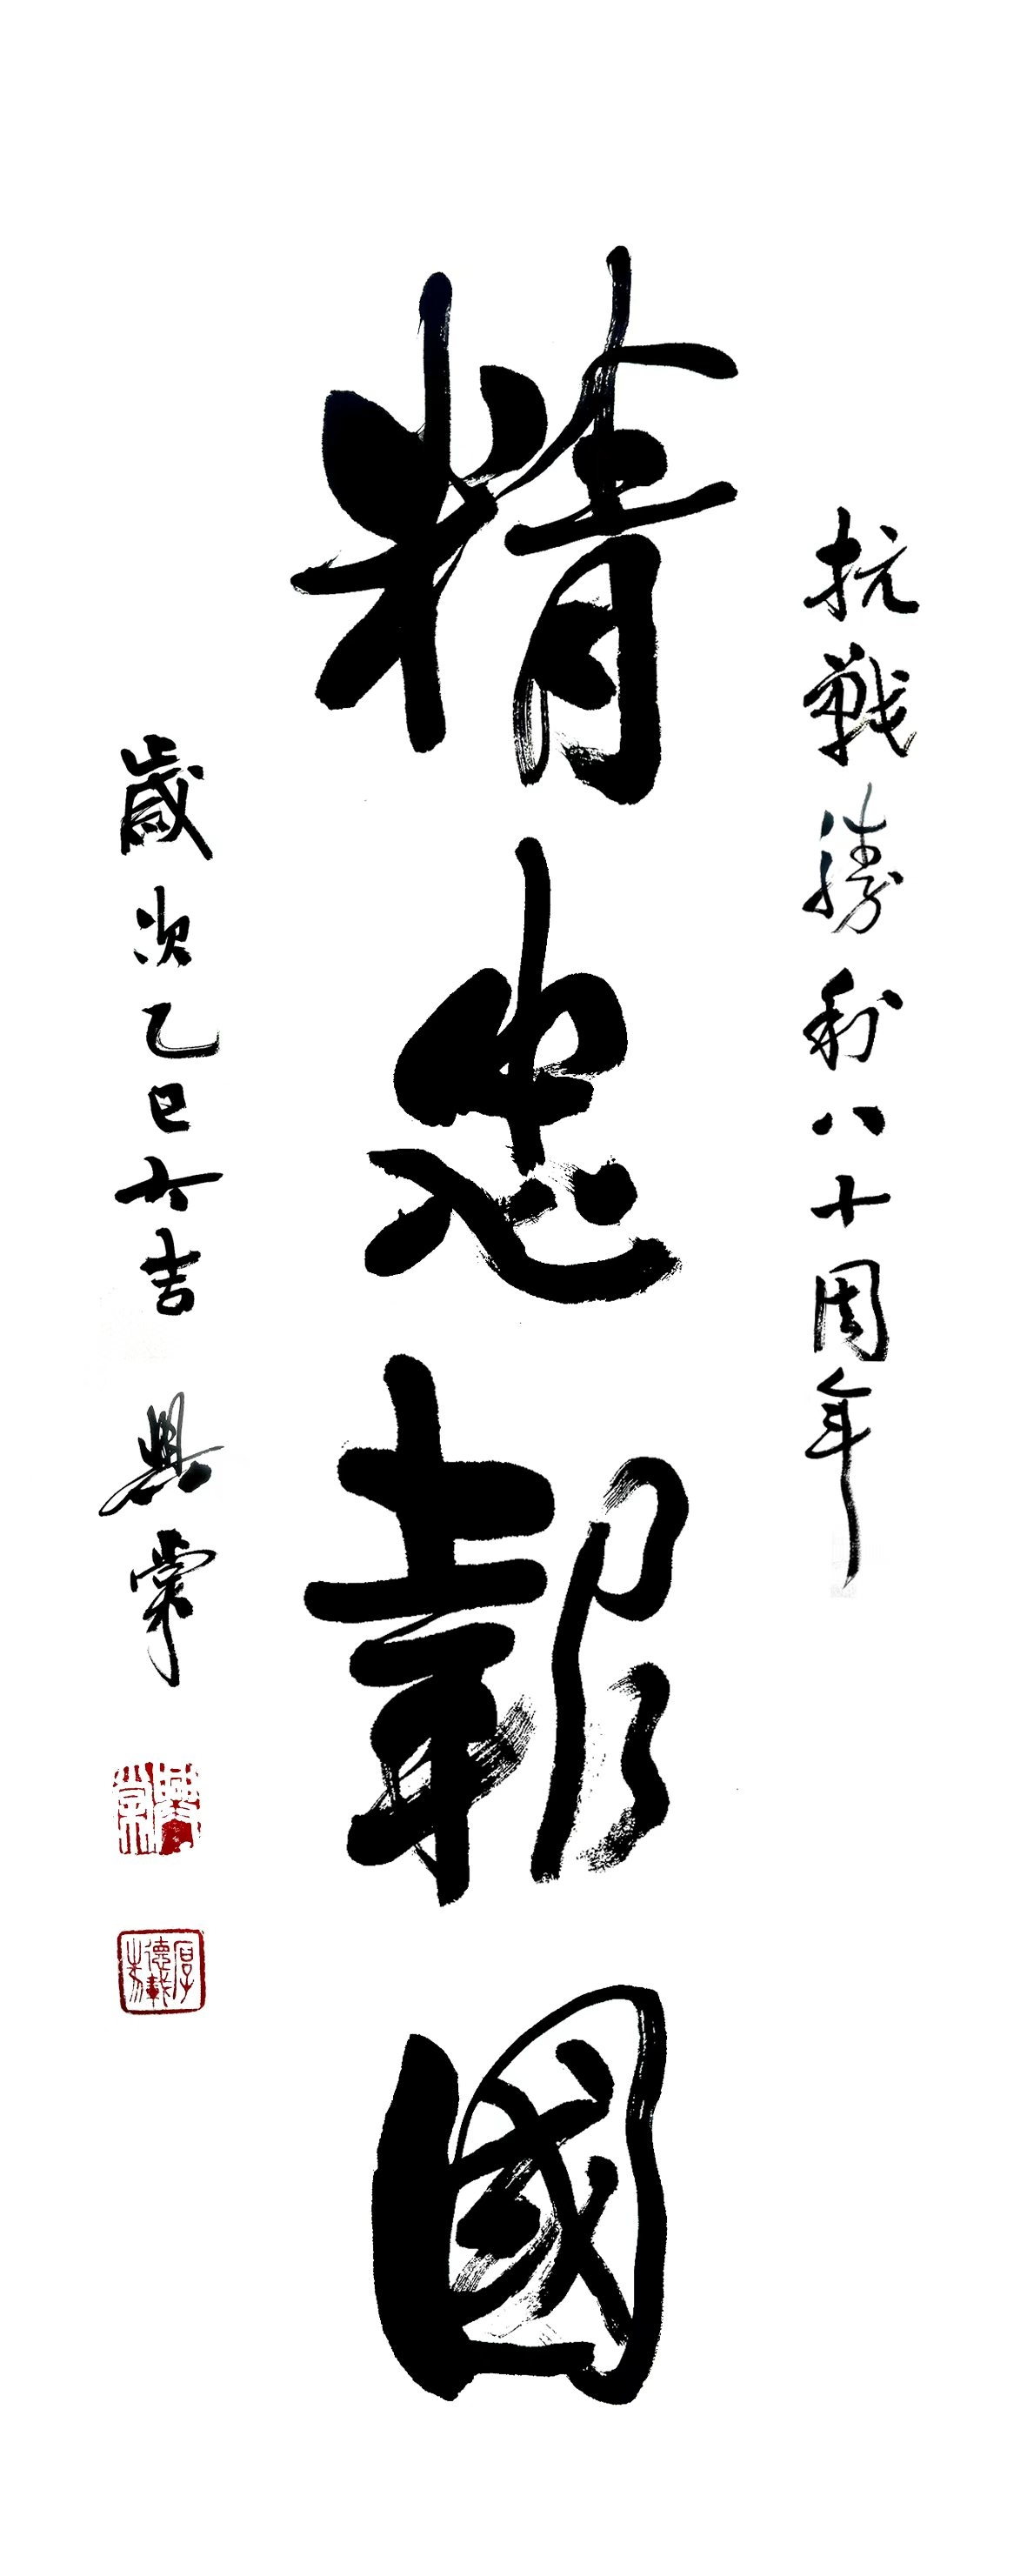 抗戰勝利八十周年
精忠報國
歲次乙巳大吉 興棠
興棠
厚德載物